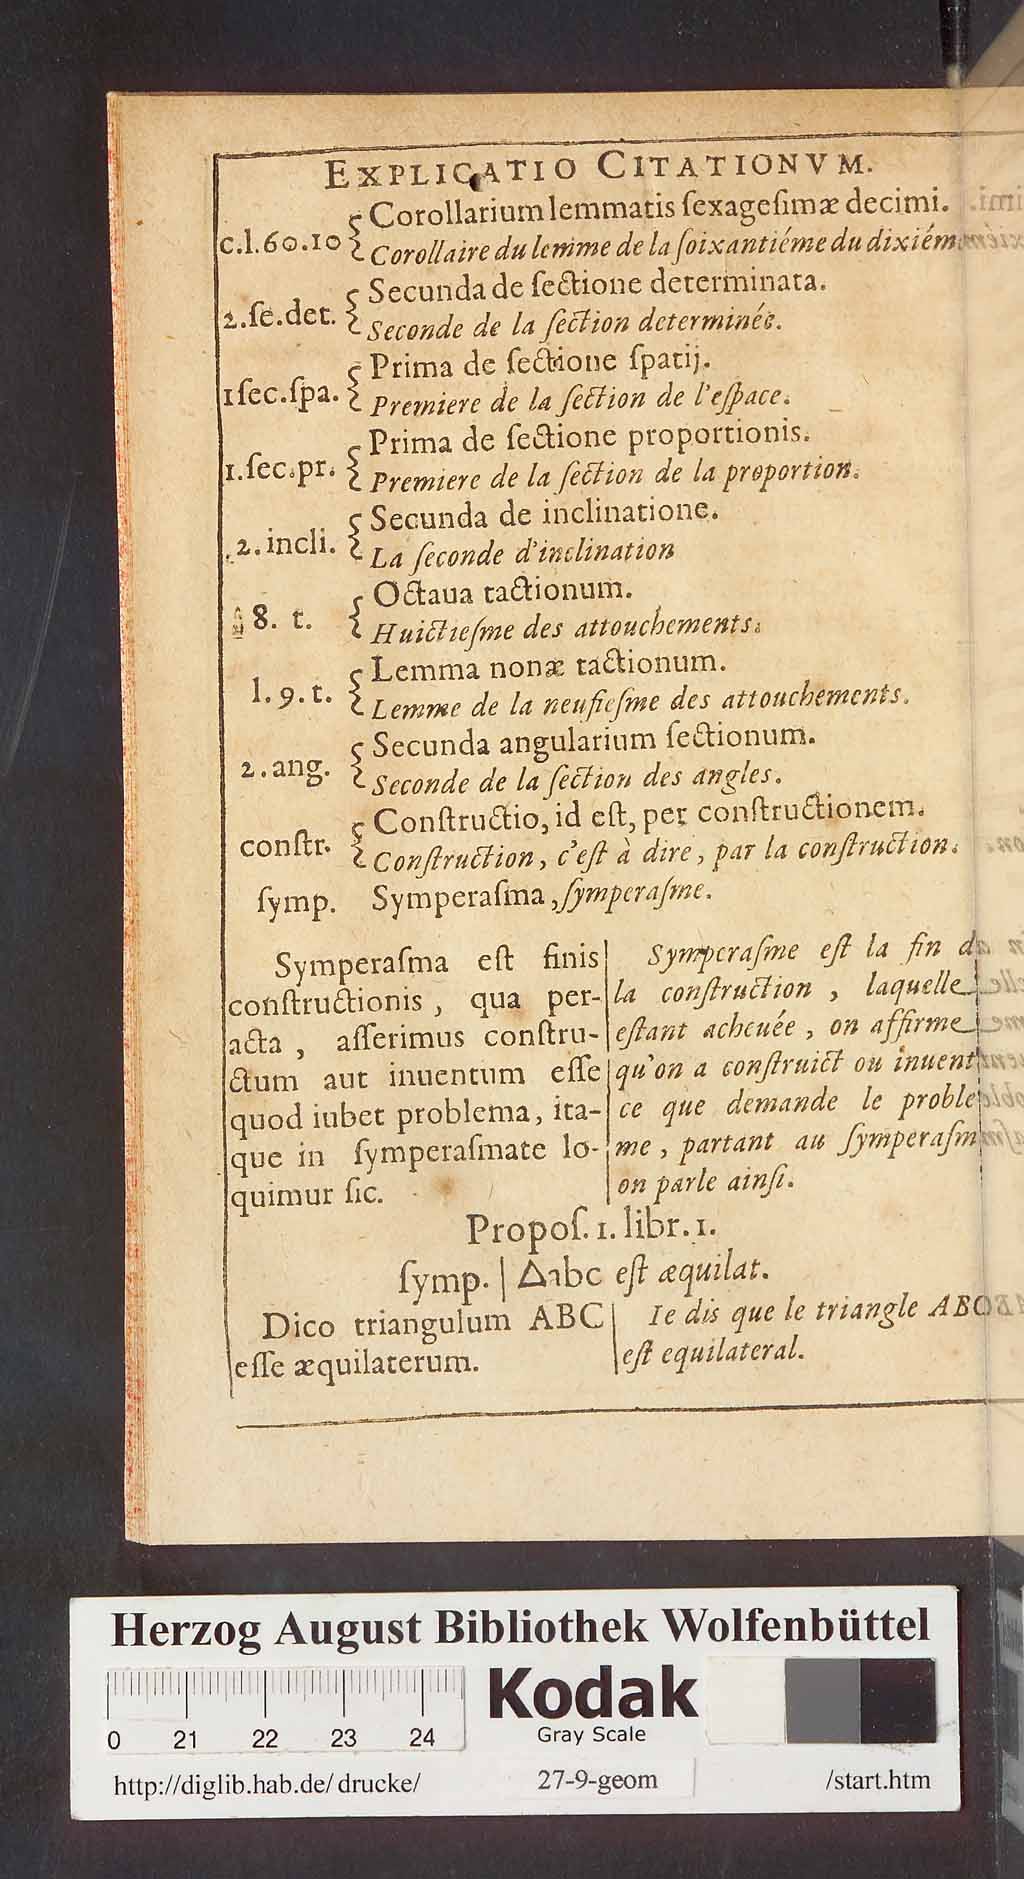 EXPLICATIO CITATIONVM.
c.l.60.10 { Corollarium lemmatis ſexageſimæ decimi.
Corollaire du lemme de la ſoixantiéme du dixiém
2.ſe.det. { Secunda de ſectione determinata.
Seconde de la ſection determinée.
1ſec.ſpa. { Prima de ſectione ſpatij.
Premiere de la ſection de l'eſpace.
1.ſec.pr. { Prima de ſectione proportionis.
Premiere de la ſection de la proportion.
2.incli. { Secunda de inclinatione.
La ſeconde d'inclination
8. t. { Octaua tactionum.
Huictieſme des attouchements.
l.9.t. { Lemma nonæ tactionum.
Lemme de la neufieſme des attouchements.
2.ang. { Secunda angularium ſectionum.
Seconde de la ſection des angles.
conſtr. { Conſtructio, id eſt, per conſtructionem.
Conſtruction, c'eſt à dire, par la conſtruction.
ſymp. Symperaſma, ſymperaſme.
Symperaſma eſt finis
conſtructionis, qua per-
acta, aſſerimus conſtru-
ctum aut inuentum eſſe
quod iubet problema, ita-
que in ſymperaſmate lo-
quimur ſic.
Symperaſme eſt la fin d
la conſtruction, laquelle
eſtant acheuée, on affirme
qu'on a conſtruict ou inuent
ce que demande le proble
me, partant au ſymperaſm
on parle ainſi.
Propoſ. 1. libr. 1.
ſymp. | △abc eſt æquilat.
Dico triangulum ABC
eſſe æquilaterum.
Ie dis que le triangle ABC
eſt equilateral.
Herzog August Bibliothek Wolfenbüttel
0 21 22 23 24
Kodak
Gray Scale
http://diglib.hab.de/drucke/ 27-9-geom /start.htm